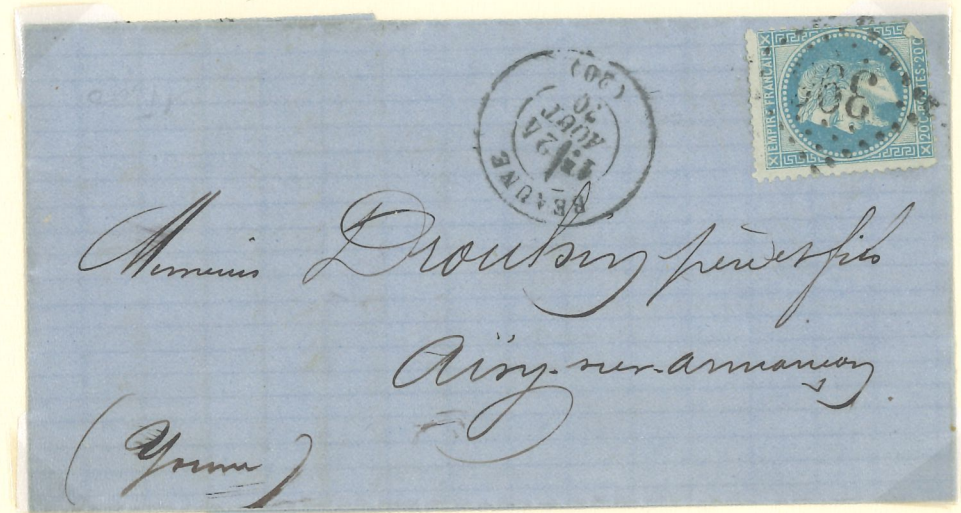 BEAUNE
2A
AOUT
(20)
EMPIRE FRANÇAIS
20 C POSTES 20 C
Messieurs Drouhin père et fils
Aisy-sur-armançon
(Yonne)